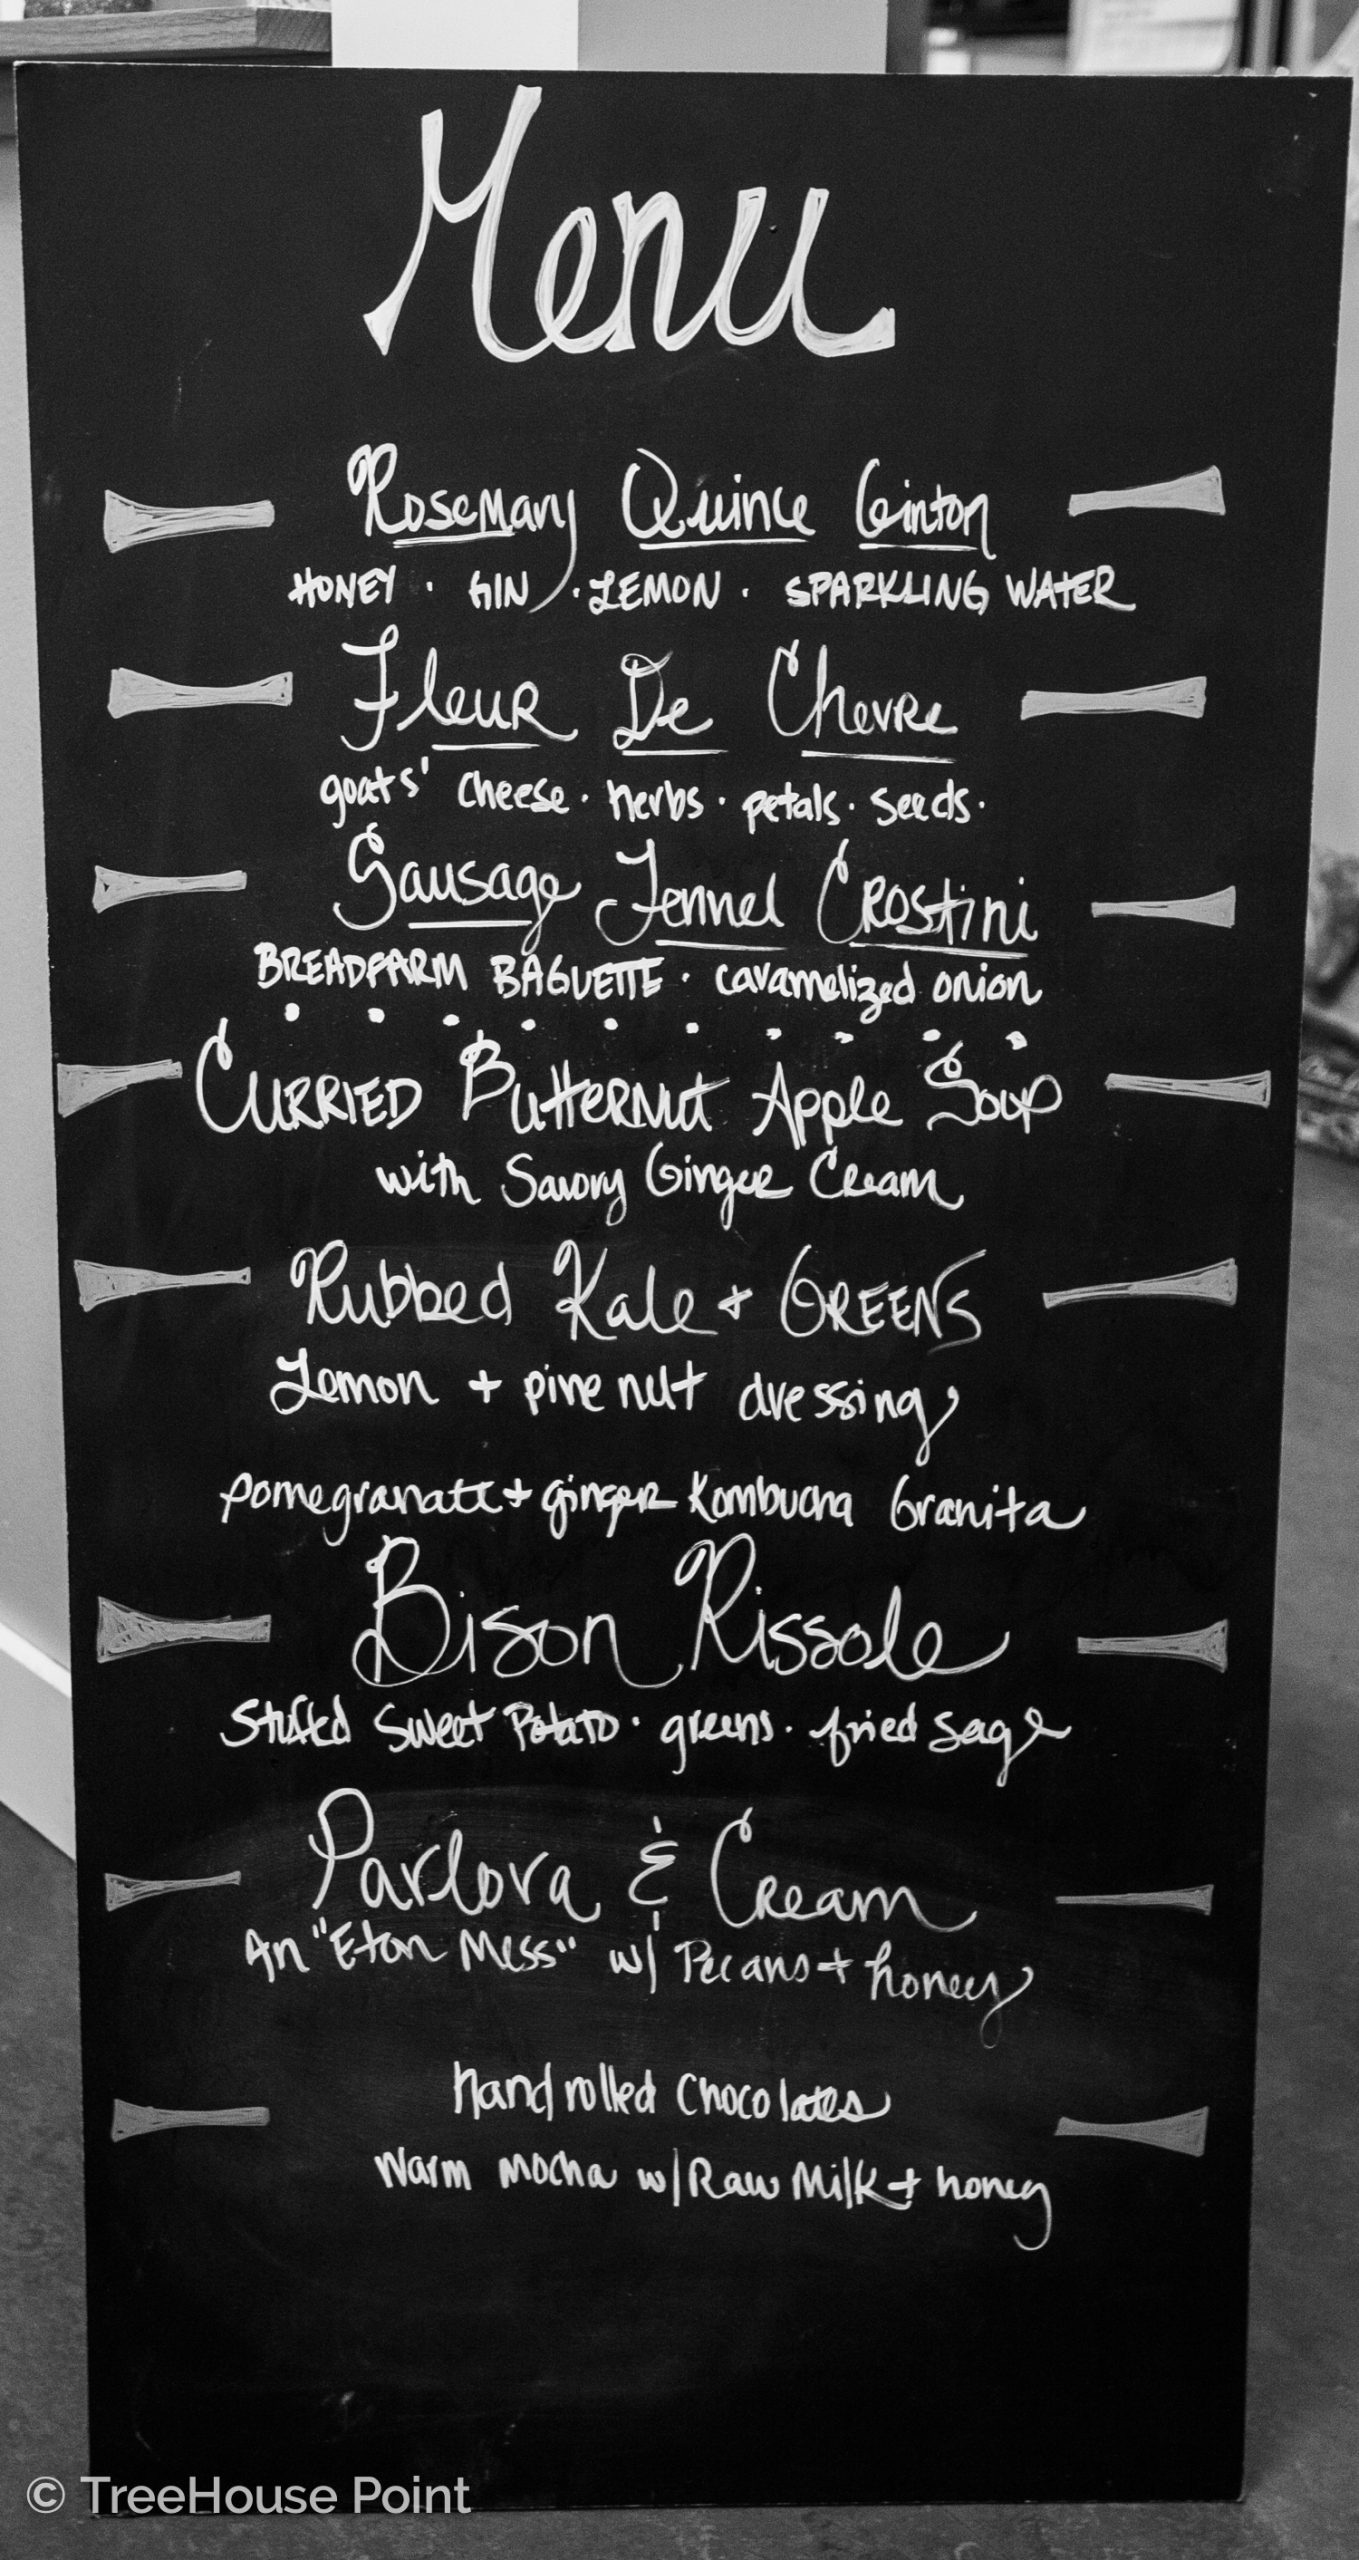 Menu
Rosemary Quince Ginton
HONEY · GIN · LEMON · SPARKLING WATER
Fleur De Chevre
goats' cheese · herbs · petals · seeds ·
Sausage Fennel Crostini
BREADFARM BAGUETTE · caramelized onion
CURRIED ButterNut Apple Soup
with Savory Ginger Cream
Rubbed Kale + GREENS
Lemon + pine nut dressing
pomegranate + ginger Kombucha Granita
Bison Rissole
Stuffed Sweet Potato · greens · fried sage
Parlova & Cream
An "Eton Mess" w/ Pecans + honey
hand rolled Chocolates
Warm Mocha w/ Raw Milk + honey
© TreeHouse Point